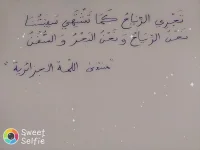 تَجْري الرِّيَاحُ كَمَا تَشْتَهِي سَفِينَتُنَا
نَحْنُ الرِّيَاحُ و نَحْنُ البَحْرُ و السُّفُنُ
اللغة الجزائرية
Sweet
Selfie